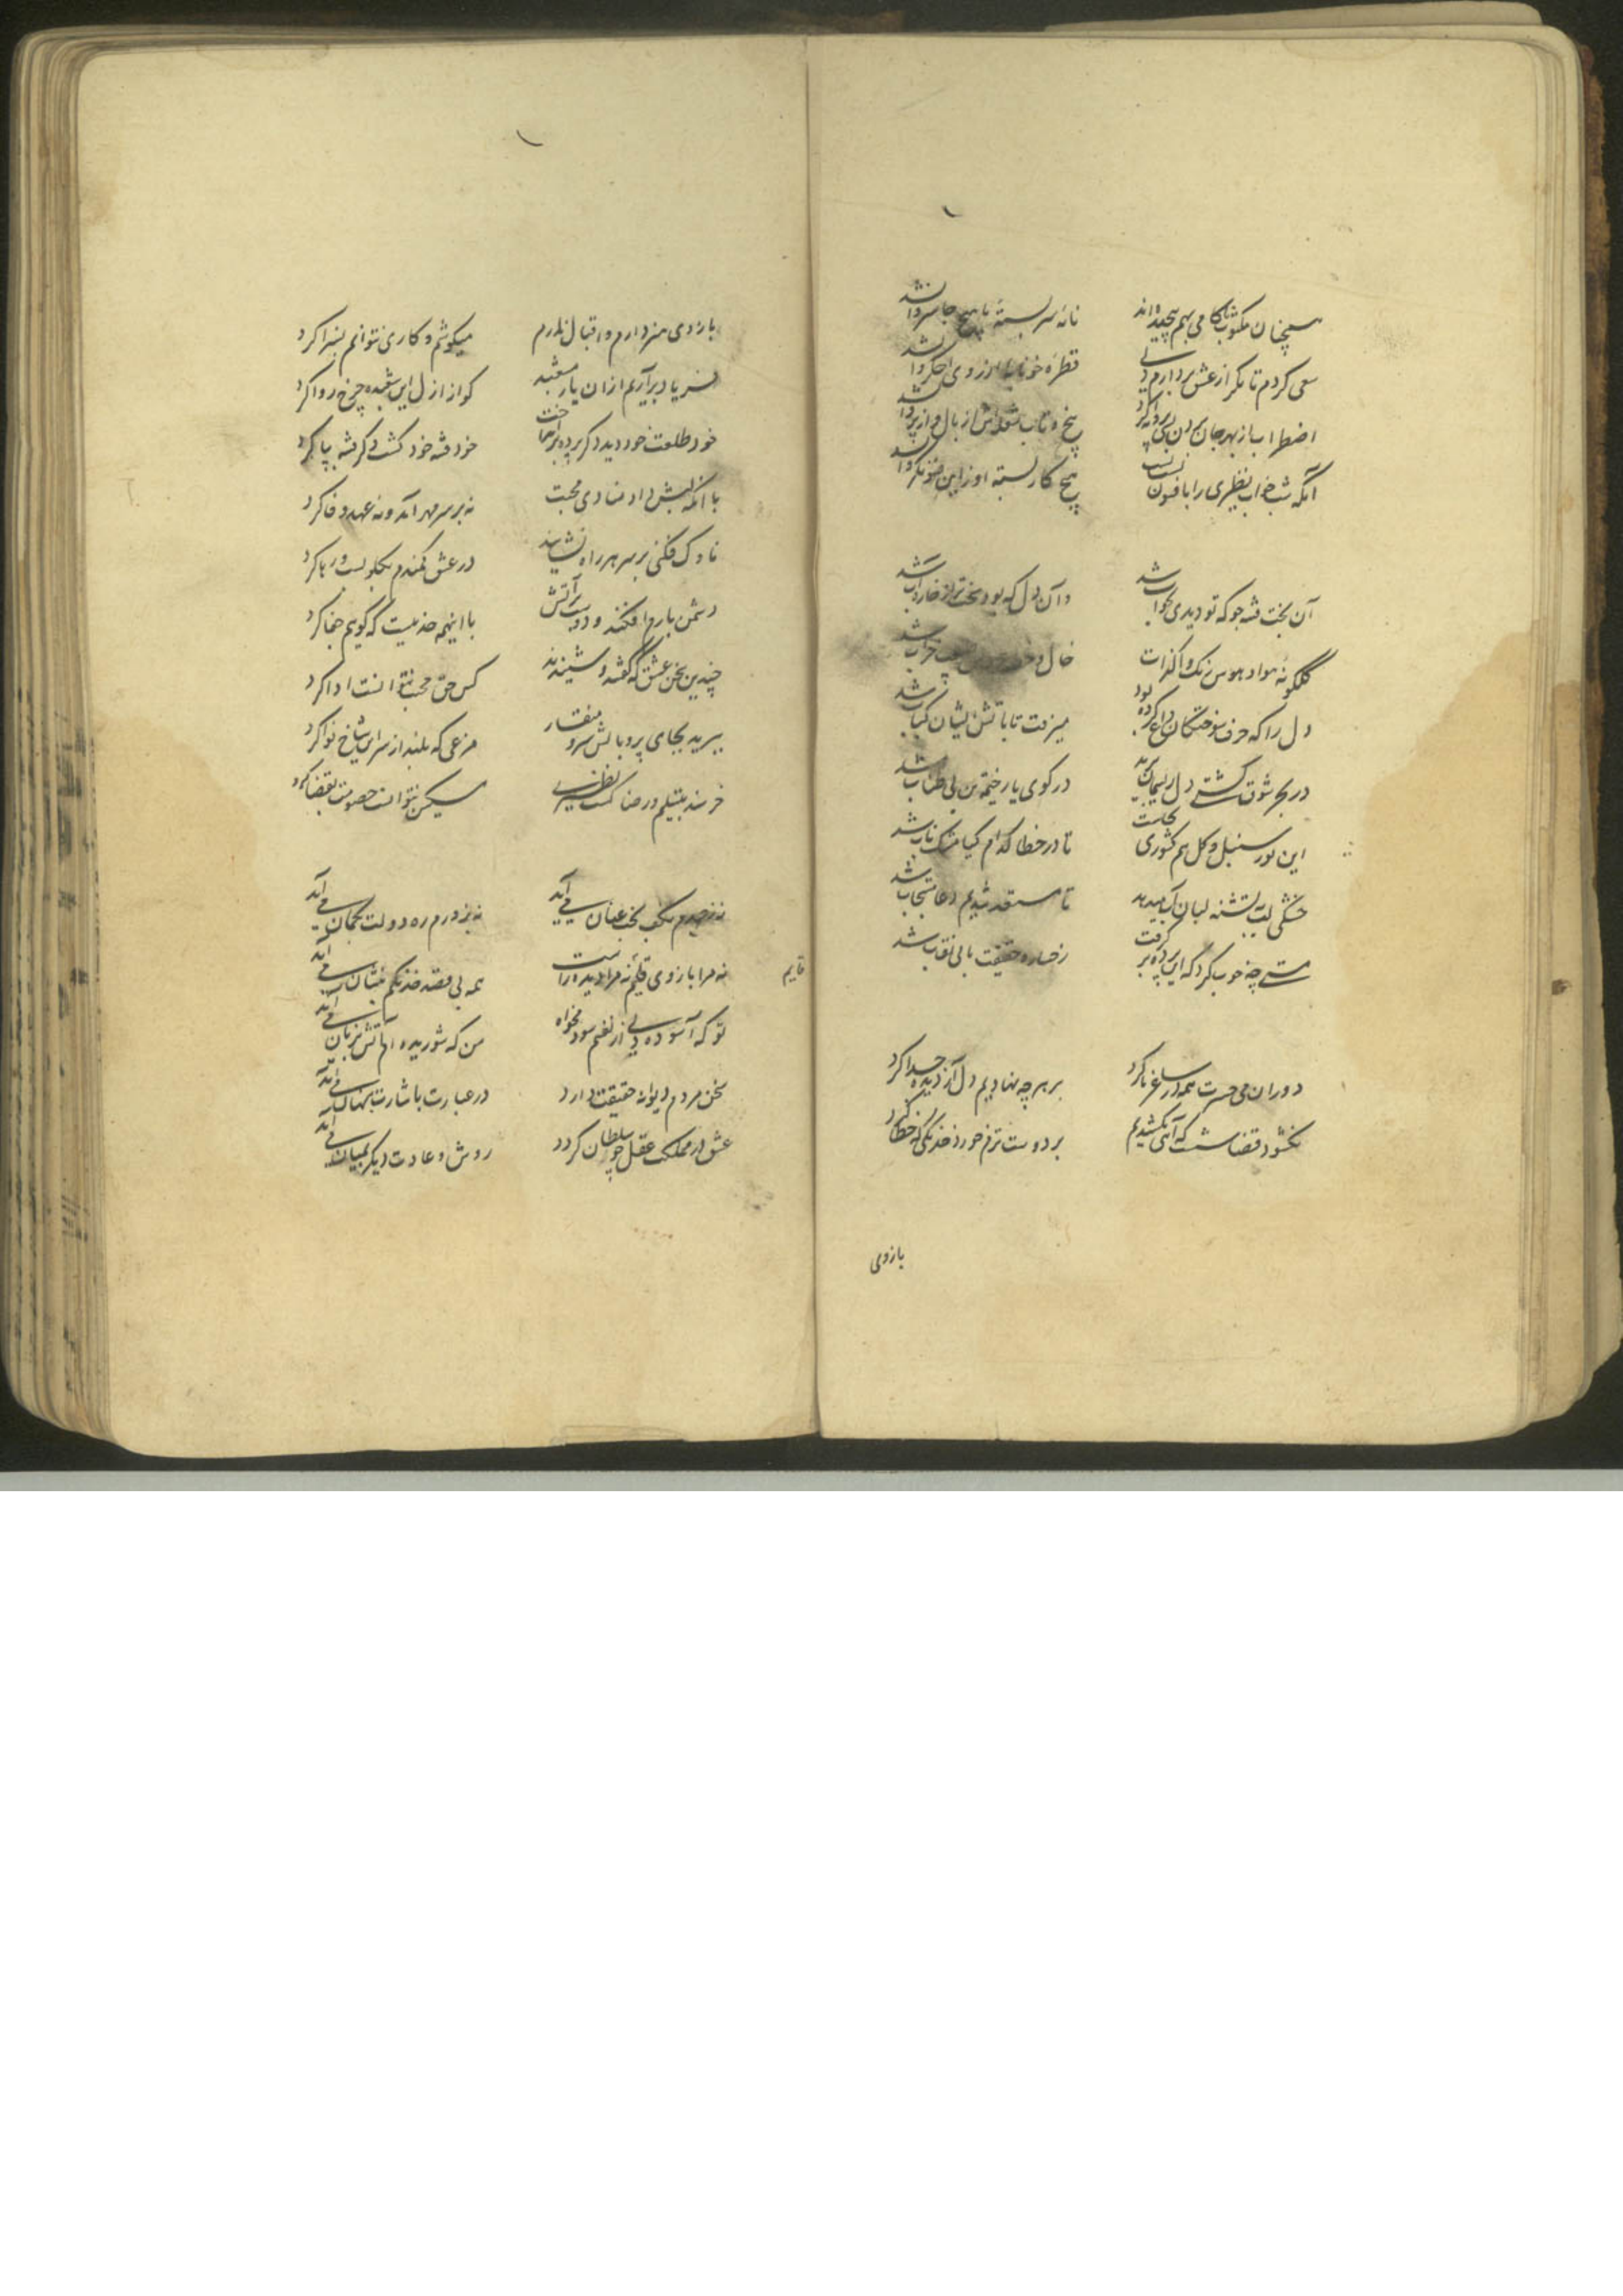 همچنان مکتوب ناکامی بهم پیچیده‌اند نامهٔ سربستهٔ ما هیچ جا سر وا نشد
سعی کردم تا مگر از عشق بردارم دلی قطرهٔ خونابهٔ از روی اخگر وا نشد
اضطراب از بهر جان
آنکه شب خواب نظیری را بافسون بست هیچ کار بستهٔ او زین فسونگر وا نشد
آن بخت فتنه‌جو که تو دیدی بخواب شد وآن دل که بود سخت‌تر از خاره آب شد
گلگونهٔ هوا و هوس رنگ واگذاشت خال و خط
دل را که حرف سوختگان داغ کرده بود میرفت تا باتش ایشان کباب شد
در بحر شوق کشتی دل ریسمان برید در کوی یار خیمهٔ تن بی طناب شد
این نور سنبل و گل هم کشوری کجاست تا در خطا کدام گیا مشک ناب شد
خشکی لب به تشنه لبان آب میدهد تا مستعد شدیم دعا مستجاب شد
مستی چه خوب کرد که این پرده برگرفت رخسارهٔ حقیقت ما بی نقاب شد
دوران می حسرت همه در ساغر ما کرد بر هر چه نهادیم دل از دیده جدا کرد
نگشود قضا شست که آهی نکشیدیم بر دوست ترم خورد خدنگی که خطا کرد
بازوی
بازوی هنر دارم و اقبال ندارم میکوشم و کاری نتوانم بسزا کرد
فریاد برآریم ازان یار مشعبد کو از ازل این شعبدهٔ چرخ روا کرد
خود طلعت خود دید دگر پرده برانداخت خود فتنهٔ خود گشت دگر فتنه بپا کرد
با آنکه لبش داد منادی محبت نه بر سر مهر آمد و نه عهد وفا کرد
ناوک فکنی بر سر هر راه نشانید در عشق کمندم بگلو بست و رها کرد
دشمن بارم افکند و دوست بر آتش با اینهمه حد نیست که گویم جفا کرد
چندین سخن عشق که گفتند و شنیدند کس حق محبت نتوانست ادا کرد
ببرید بجای پر و بالش سر و منقار مرغی که بلند از سر این شاخ نوا کرد
خرسند بتسلیم و رضا گشت نظیری مسکین نتوانست خصومت بقضا کرد
نه ز صیدم بکف بخت عنان می‌آید نه بزورم ره دولت بکمان می‌آید
نه مرا بازوی قایم نه مرا دیدهٔ راست همه بی قصد خدنگم بنشان می‌آید
قایم
تو که آسوده دلی از نغمم سود مخواه من که شوریده‌ام آتش بزبان می‌آید
سخن مردم دیوانه حقیقت دارد در عبارت باشارت بنهان می‌آید
عشق در مملکت عقل چو سلطان گردد روش و عادت دیگر بمیان می‌آید